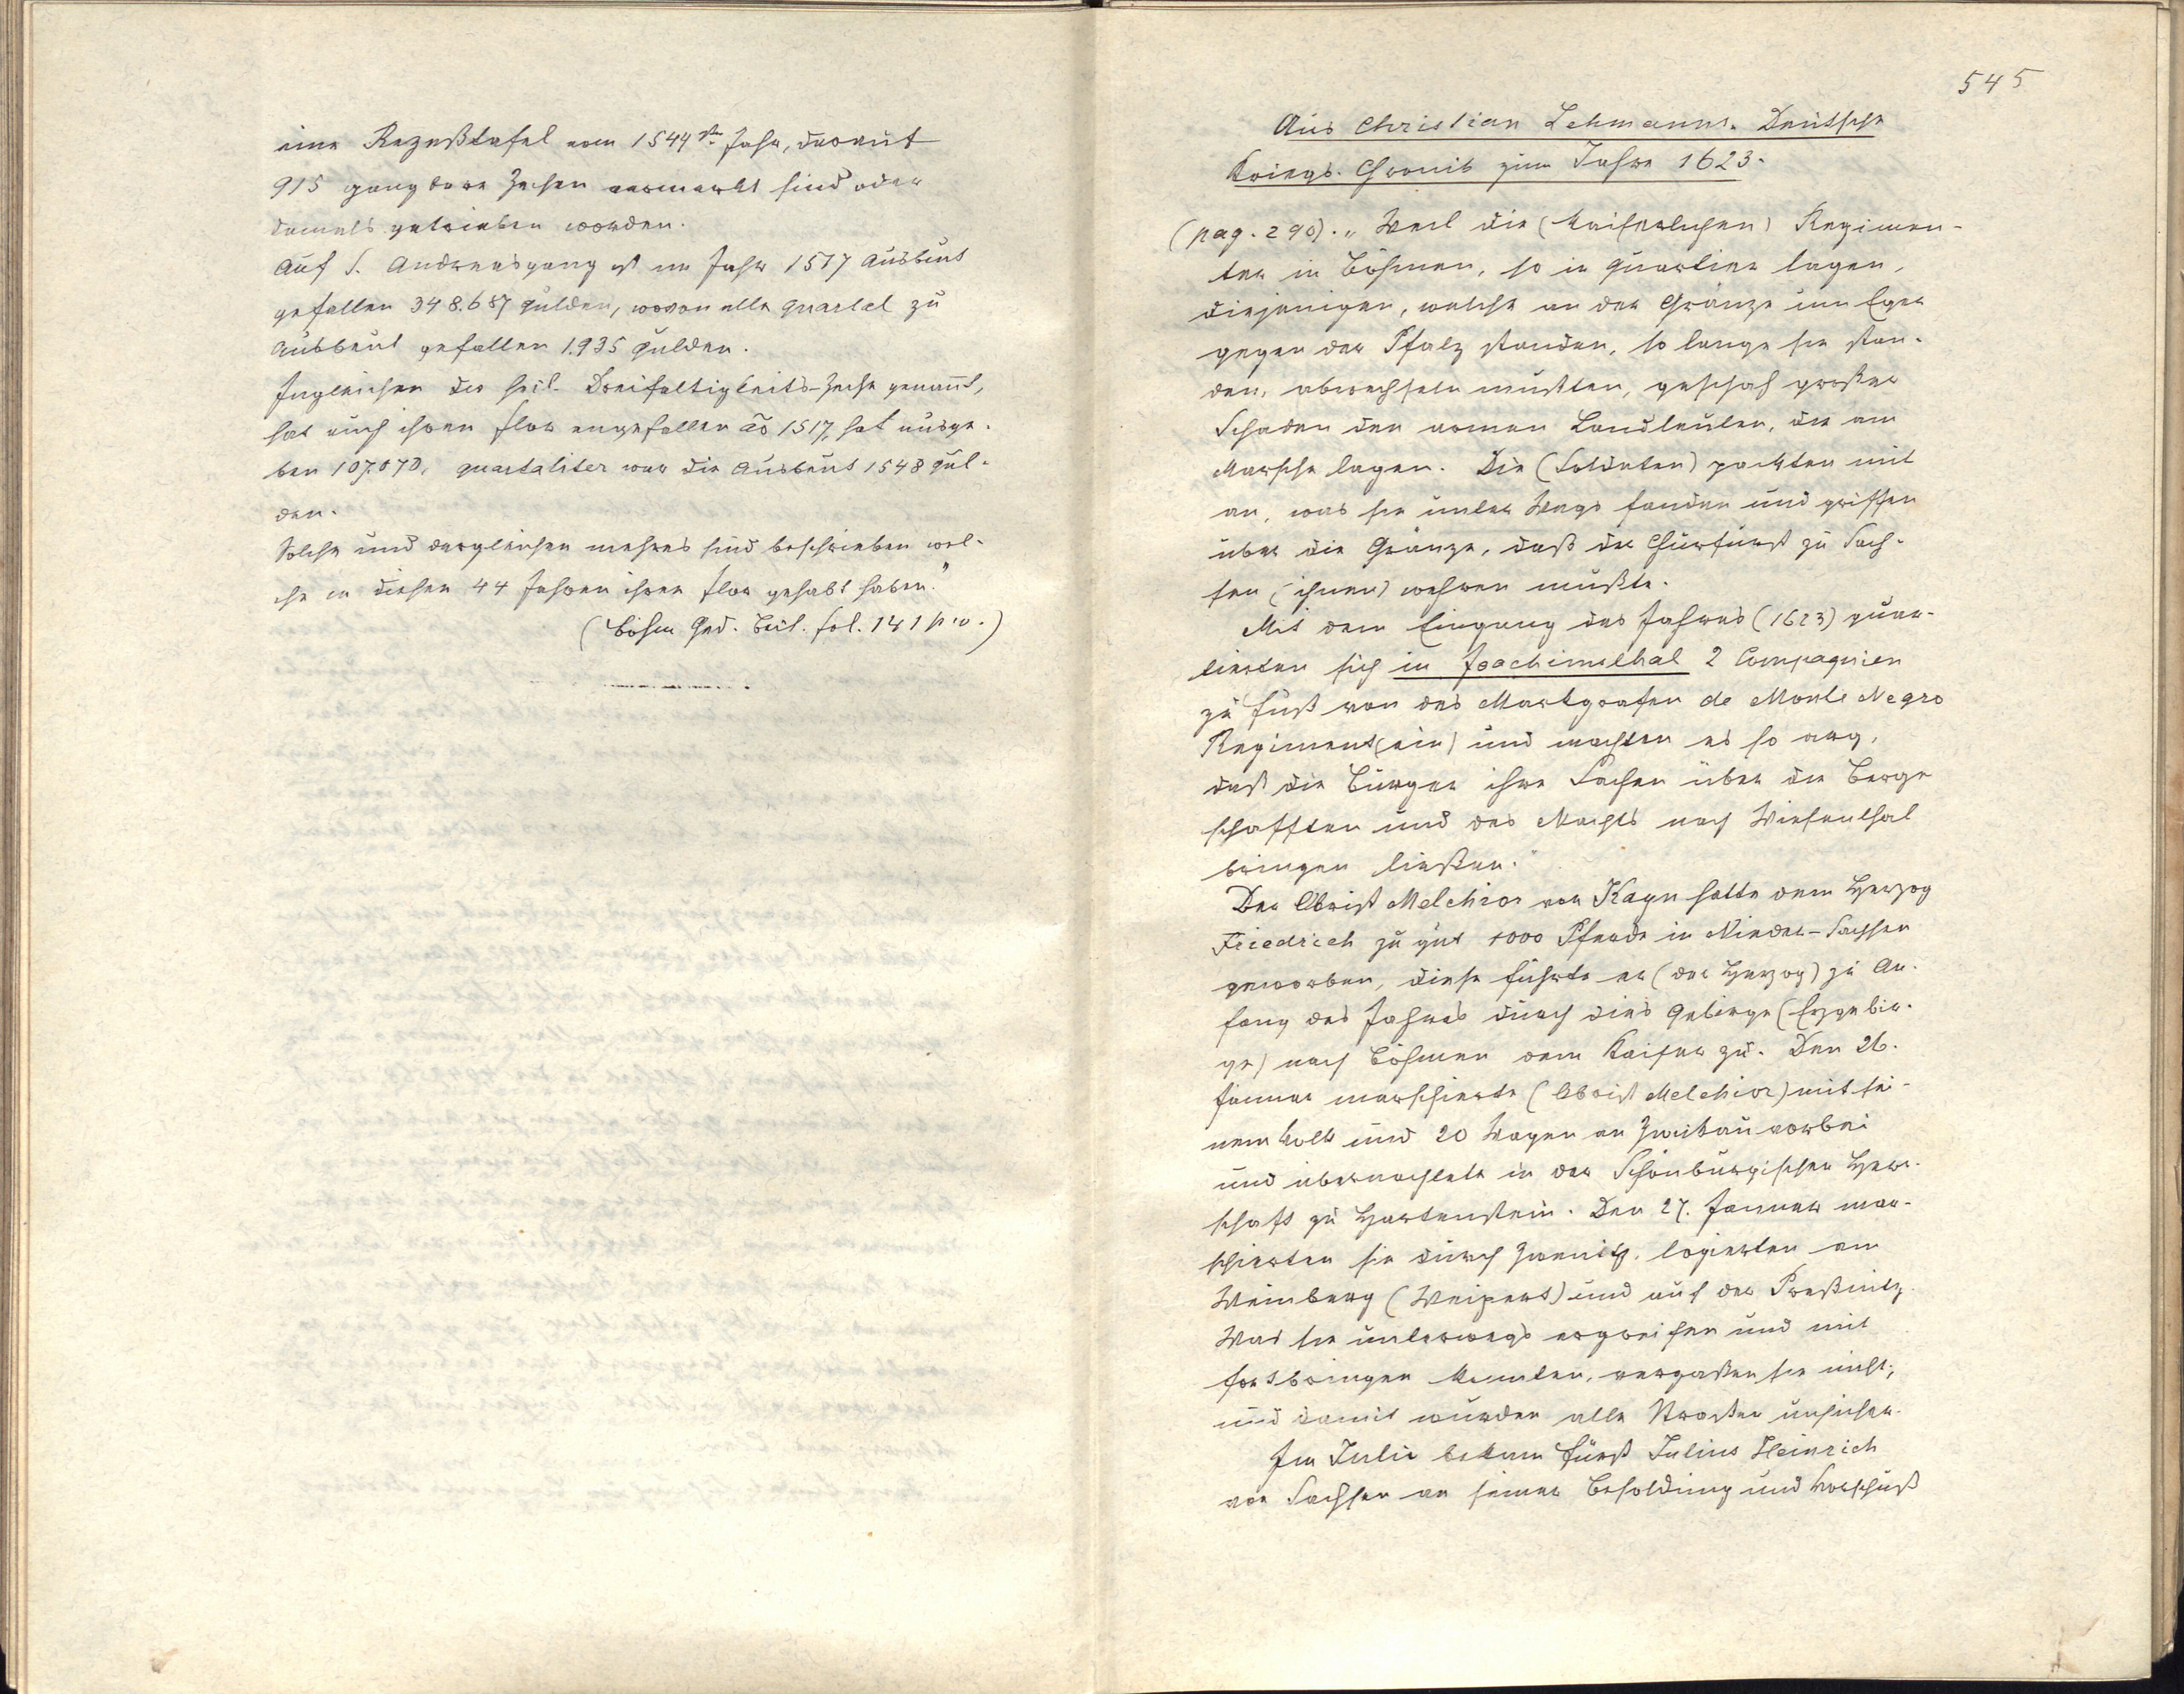 eine Rezeßtafel vom 1544ten Jahr, darauf
915 gangbare Zechen vermerkt sind oder
damals getrieben worden.
Auf S. Andreasgang ist im Jahr 1517 Ausbeut
gefallen 348.687 Gulden, wovon alle Quartal zu
Ausbeut gefallen 1.935 Gulden.
Ingleichen die heil. Dreifaltigkeits-Zeche genañt,
hat auch ihren Flor angefallen ao 1517, hat ausge-
ben 107.070, quartaliter war die Ausbeut 1548 Gul-
den.
Solche und dergleichen mehres sind beschrieben wel-
che in diesen 44 Jahren ihren Flor gehabt haben."
(Böhm Ged. Beil. fol. 141 p.v.)
545
Aus Christian Lehmanns. Deutsche
Kriegs-Chronik zum Jahre 1623.
(pag. 290). „Weil die (Kaiserlichen) Regimen-
ter in Böhmen, so in Quartier lagen,
diejenigen, welche an der Gränze um Eger
gegen der Pfalz standen, so lange sie stan-
den, abwechseln mußten, geschah großer
Schaden den armen Landleuten, die am
Marsche lagen. Die (Soldaten) packten mit
an, was sie unter Wegs fanden und griffen
über die Gränze, daß der Churfürst zu Sach-
sen (ihnen) wehren mußte.
Mit dem Eingang des Jahres (1623) quar-
tierten sich in Joachimsthal 2 Compagnien
zu Fuß von des Markgrafen de Monte Negro
Regiment (ein) und machten es so arg,
daß die Bürger ihre Sachen über die Berge
schafften und des Nachts nach Wiesenthal
bringen ließen."
Der Obrist Melchior von Kayn hatte dem Herzog
Friedrich zu gut 1000 Pferde in Nieder-Sachsen
geworben, diese führte er (der Herzog) zu An-
fang des Jahres durch dies Gebirge (Erzgebir-
ge) nach Böhmen dem Kaiser zu. Den 26.
Januar marschierte (Obrist Melchior) mit sei-
nem Volk und 20 Wagen an Zwickau vorbei
und übernachtete in der Schönburgischen Herr-
schaft zu Hartenstein. Den 27. Januar mar-
schierten sie durch Zwenitz, logierten am
Weinberg (Weipert) und auf der Preßnitz.
Was sie unterwegs ergreifen und mit
fortbringen konnten, vergaßen sie nicht;
und damit wurden alle Straßen unsicher.
Im Julie bekam Fürst Julius Heinrich
von Sachsen an seiner Besoldung und Vorschuß